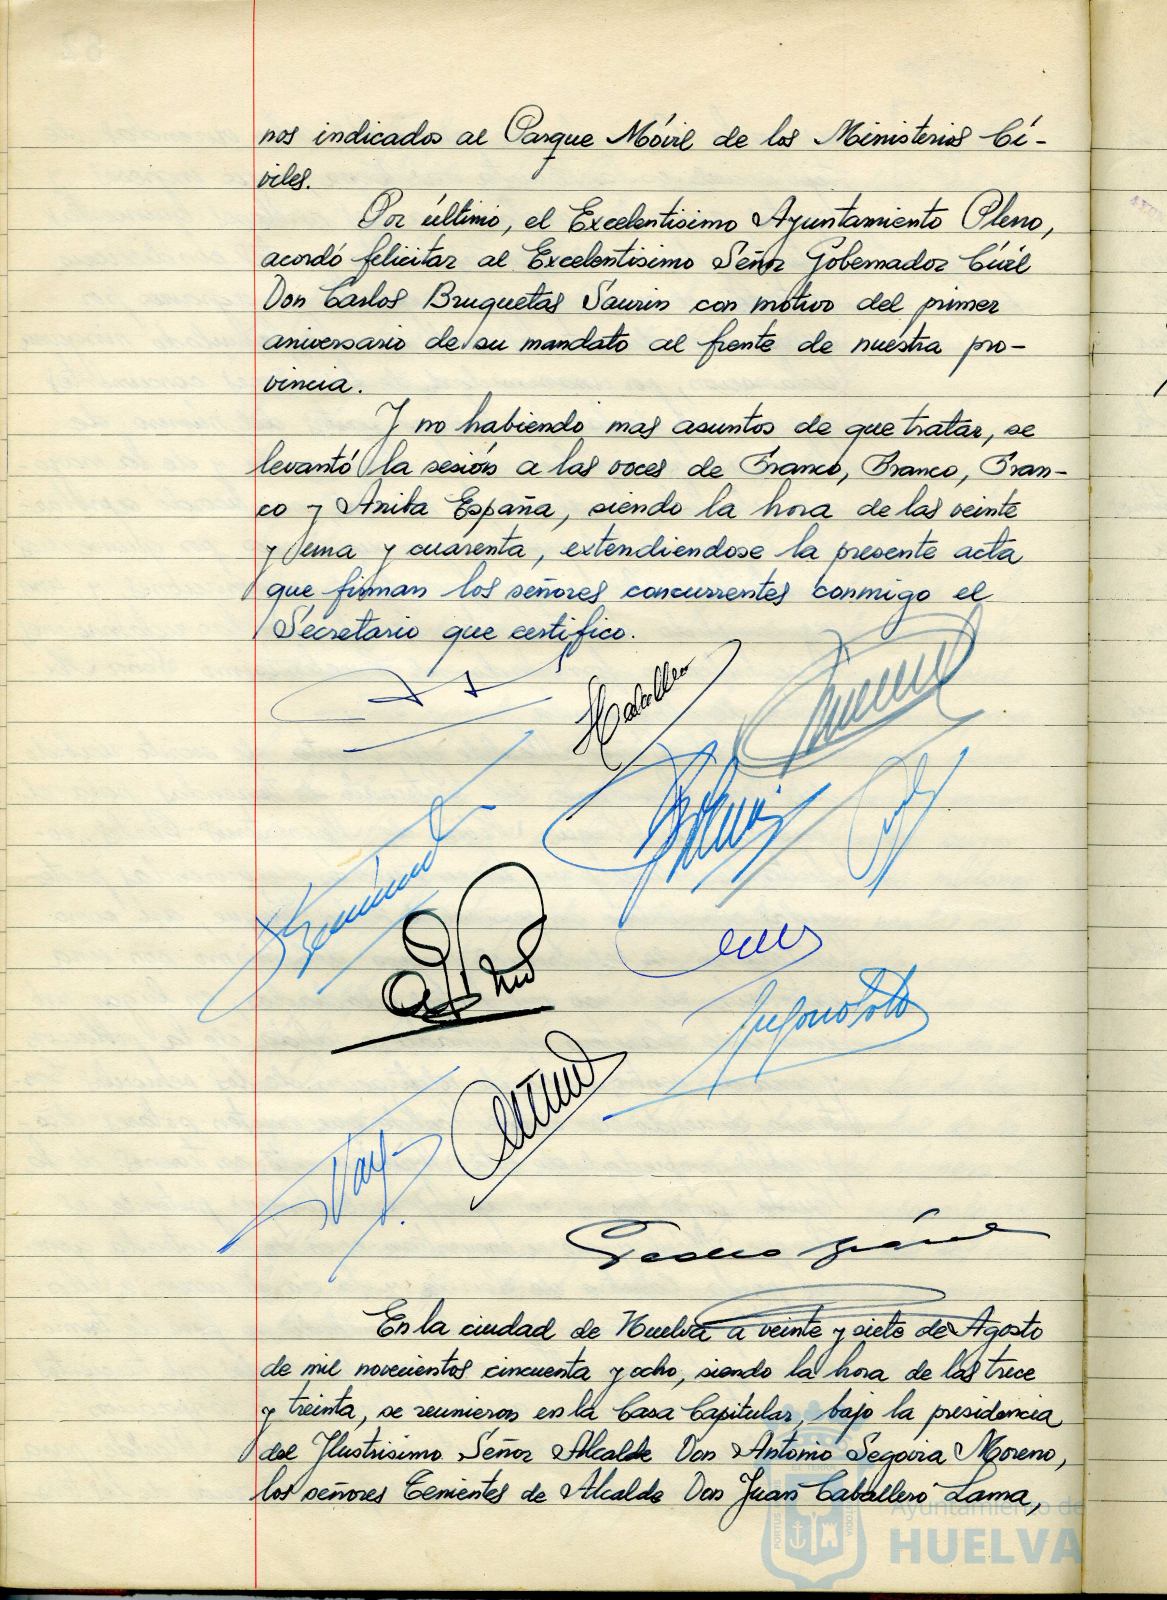 nos indicados al Parque Móvil de los Ministerios Ci-
viles.
Por último, el Excelentisimo Ayuntamiento Pleno,
acordó felicitar al Excelentisimo Señor Gobernador Civil
Don Carlos Bruquetas Saurin con motivo del primer
aniversario de su mandato al frente de nuestra pro-
vincia.
Y no habiendo mas asuntos de que tratar, se
levantó la sesión a las voces de Franco, Franco, Fran-
co y Arriba España, siendo la hora de las veinte
y una y cuarenta, extendiendose la presente acta
que firman los señores concurrentes conmigo el
Secretario que certifico.
En la ciudad de Huelva a veinte y siete de Agosto
de mil novecientos cincuenta y ocho, siendo la hora de las trece
y treinta, se reunieron en la Casa Capitular, bajo la presidencia
del Ilustrisimo Señor Alcalde Don Antonio Segovia Moreno,
los señores Tenientes de Alcalde Don Juan Caballero Lama,
Ayuntamiento de
HUELVA